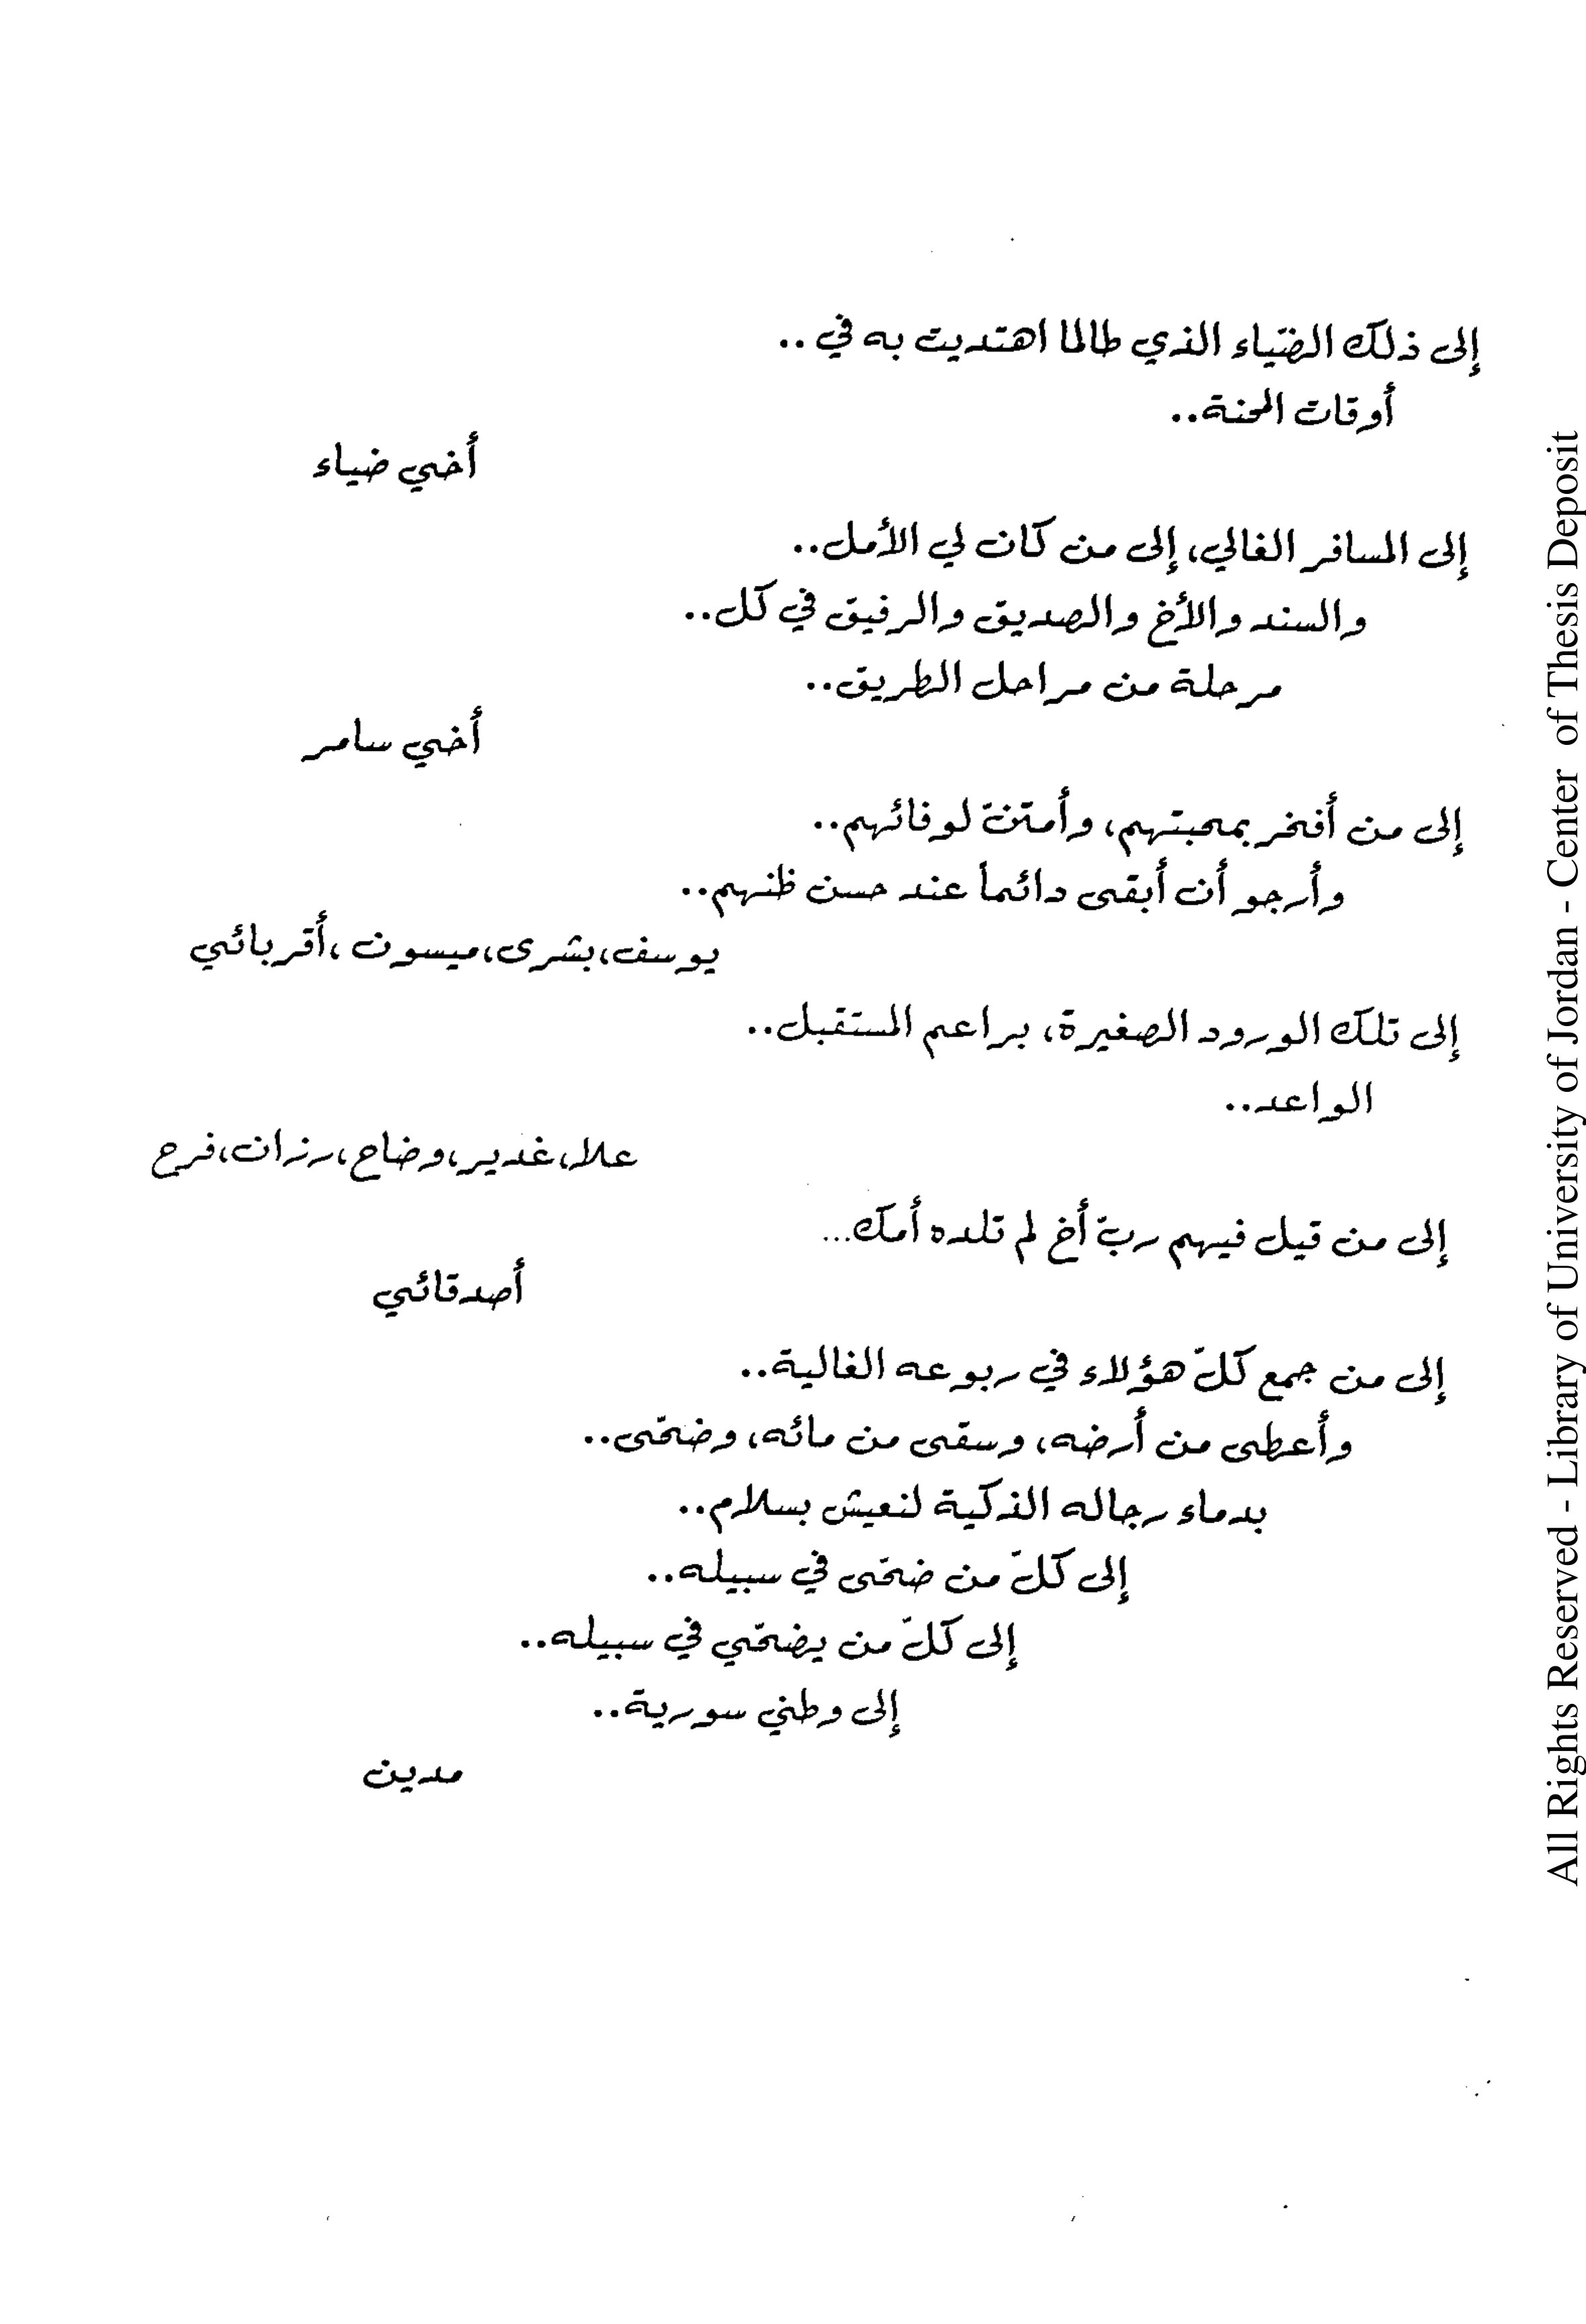 إلى ذلك الضّياء الذي طالما اهتديت به في ..
أوقات المحنة..
أخي ضياء
إلى المسافر الغالي، إلى من كان لي الأمل..
والسند والأخ والصديق والرفيق في كل..
مرحلة من مراحل الطريق..
أخي سامر
إلى من أفخر بمحبتهم، وأمتنّ لوفائهم..
وأرجو أن أبقى دائماً عند حسن ظنهم..
يوسف، بشرى، ميسون ، أقربائي
إلى تلك الورود الصغيرة، براعم المستقبل..
الواعد..
علا، غدير، وضاح، رزان، فرح
إلى من قيل فيهم ربّ أخ لم تلده أمك...
أصدقائي
إلى من جمع كلّ هؤلاء في ربوعه الغالية..
وأعطى من أرضه، وسقى من مائه، وضحّى..
بدماء رجاله الذكية لنعيش بسلام..
إلى كلّ من ضحّى في سبيله..
إلى كلّ من يضحّي في سبيله..
إلى وطني سورية..
مدين
All Rights Reserved - Library of University of Jordan - Center of Thesis Deposit